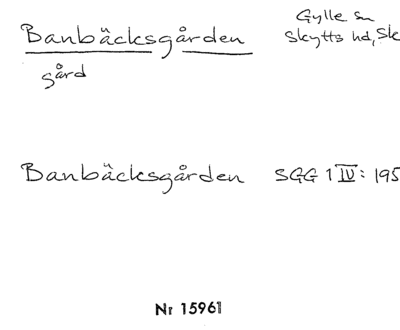 Banbäcksgården
Gylle sn
Skytts hd, Sk
gård
Banbäcksgården SGG 1 IV: 195
Nr 15961